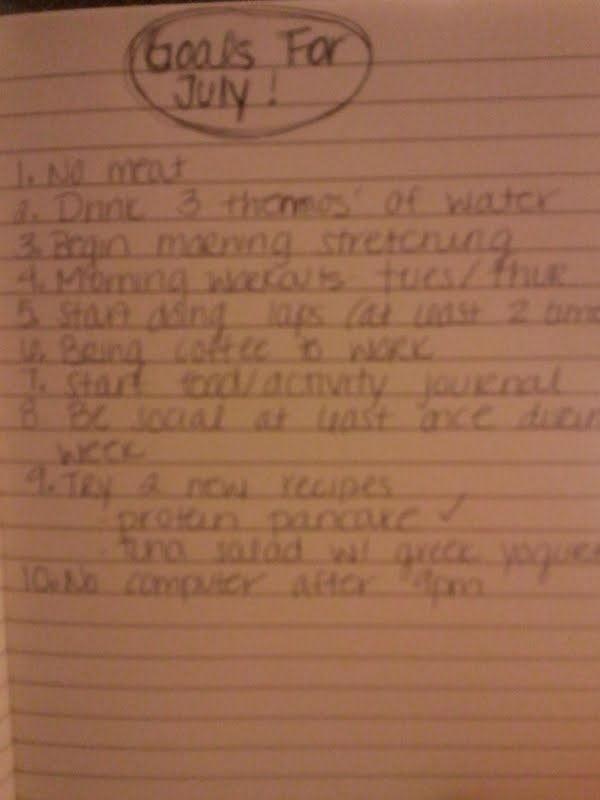 Goals For
July!
1. No meat
2. Drink 3 thermos' of water
3. Begin morning stretching
4. Morning workouts tues/thur
5. Start doing laps (at least 2
6. Bring coffee to work
7. Start food/activity journal
8 Be social at least once
week
9. Try 2 new recipes
· protein pancake ✓
· tuna salad w/ greek
10. No computer after 9pm